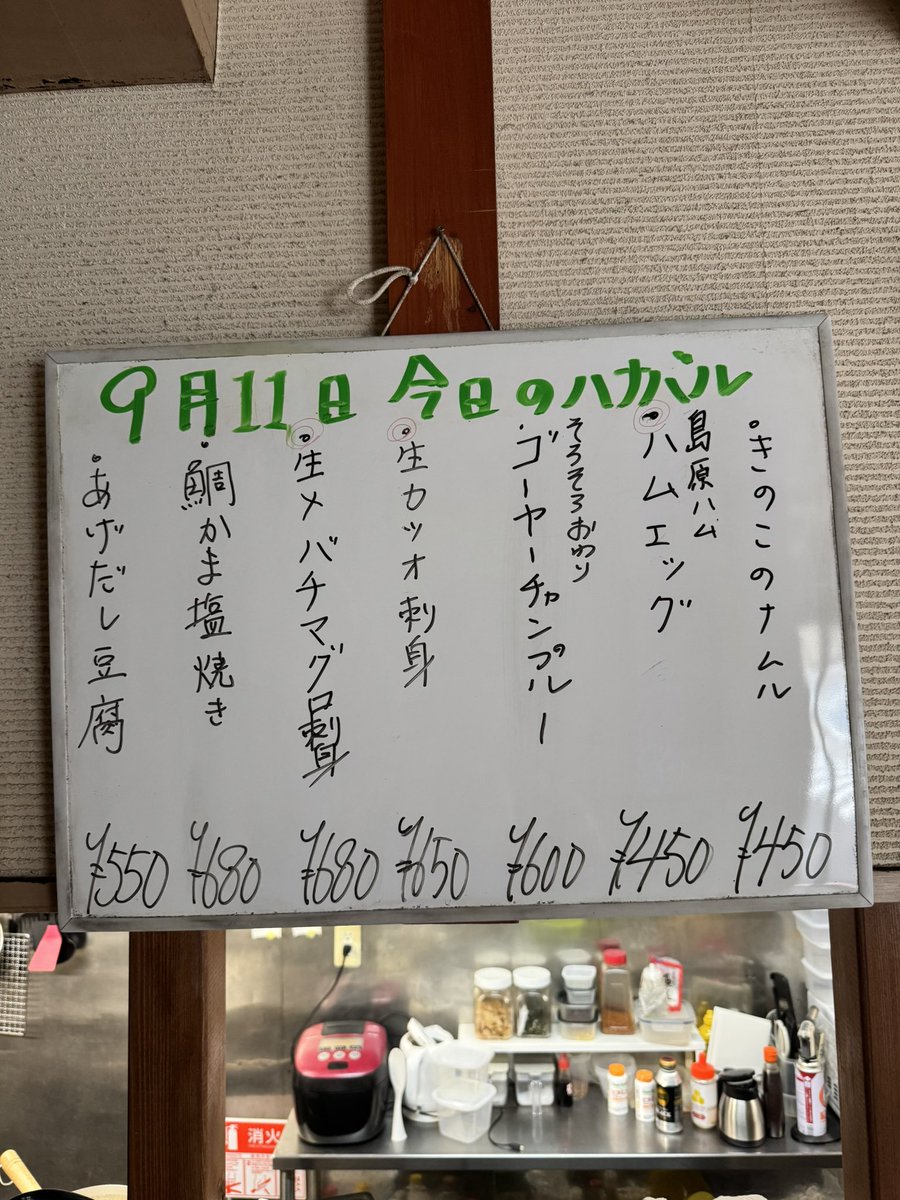 9月11日 今日のハカバル
・きのこのナムル
¥450
島原ハム
・ハムエッグ
¥450
そろそろおわり
・ゴーヤーチャンプルー
¥600
・生カツオ刺身
¥650
・生メバチマグロ刺身
¥680
・鯛かま塩焼き
¥680
・あげだし豆腐
¥550
消火